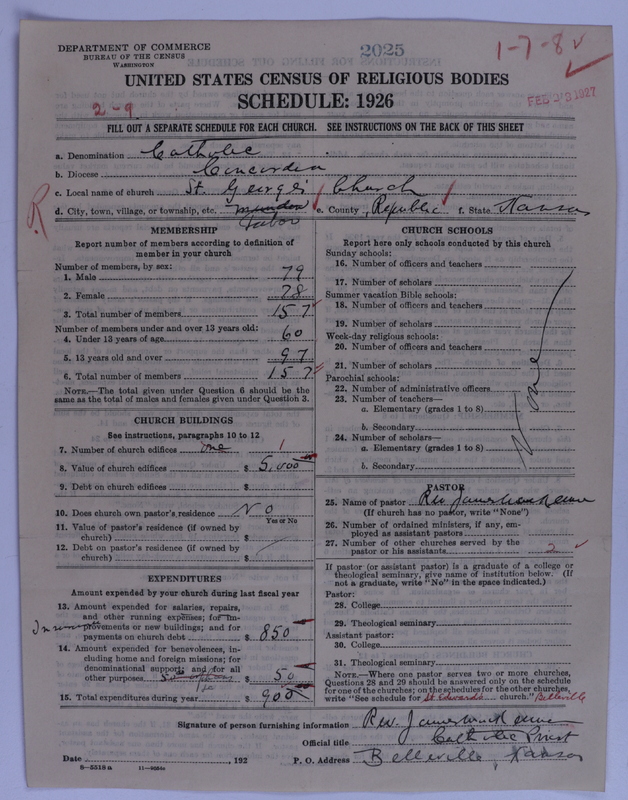 DEPARTMENT OF COMMERCE
BUREAU OF THE CENSUS
WASHINGTON
2025
1-7-8
FEB 1927
UNITED STATES CENSUS OF RELIGIOUS BODIES
SCHEDULE: 1926
2-9
FILL OUT A SEPARATE SCHEDULE FOR EACH CHURCH. SEE INSTRUCTIONS ON THE BACK OF THIS SHEET
a. Denomination Catholic
b. Diocese Concordia
c. Local name of church St. George's Church
d. City, town, village, or township, etc. Munden e. County, Republic f. State Kansas
Tabor
R
MEMBERSHIP
Report number of members according to definition of
member in your church
Number of members, by sex:
1. Male 79
2. Female 78
3. Total number of members 157
Number of members under and over 13 years old:
4. Under 13 years of age 60
5. 13 years old and over 97
6. Total number of members 157
NOTE.—The total given under Question 6 should be the
same as the total of males and females given under Question 3.
CHURCH BUILDINGS
See instructions, paragraphs 10 to 12
7. Number of church edifices one 1
8. Value of church edifices $ 5,000
9. Debt on church edifices $
10. Does church own pastor's residence? No
Yes or No
11. Value of pastor's residence (if owned by
church) $
12. Debt on pastor's residence (if owned by
church) $
EXPENDITURES
Amount expended by your church during last fiscal year
13. Amount expended for salaries, repairs,
and other running expenses; for im-
provements or new buildings; and for
payments on church debt $ 850
14. Amount expended for benevolences, in-
cluding home and foreign missions; for
denominational support; and for all
other purposes $ 50
15. Total expenditures during year $ 900
CHURCH SCHOOLS
Report here only schools conducted by this church
Sunday schools:
16. Number of officers and teachers
17. Number of scholars
Summer vacation Bible schools:
18. Number of officers and teachers
19. Number of scholars
Week-day religious schools:
20. Number of officers and teachers
21. Number of scholars
Parochial schools:
22. Number of administrative officers
23. Number of teachers—
a. Elementary (grades 1 to 8)
b. Secondary
24. Number of scholars—
a. Elementary (grades 1 to 8)
b. Secondary
None
PASTOR
25. Name of pastor Rev James
(If church has no pastor, write "None")
26. Number of ordained ministers, if any, em-
ployed as assistant pastors
27. Number of other churches served by the
pastor or his assistants 2
If pastor (or assistant pastor) is a graduate of a college or
theological seminary, give name of institution below. (If
not a graduate, write "No" in the space indicated.)
Pastor:
28. College
29. Theological seminary
Assistant pastor:
30. College
31. Theological seminary
NOTE.—Where one pastor serves two or more churches,
Questions 28 and 29 should be answered only on the schedule
for one of the churches; on the schedules for the other churches,
write "See schedule for St Edwards church." Belleville
Signature of person furnishing information Rev. James
Official title Catholic Priest
Date , 192 P. O. Address Belleville, Kansas
8—5518a 11—9084a